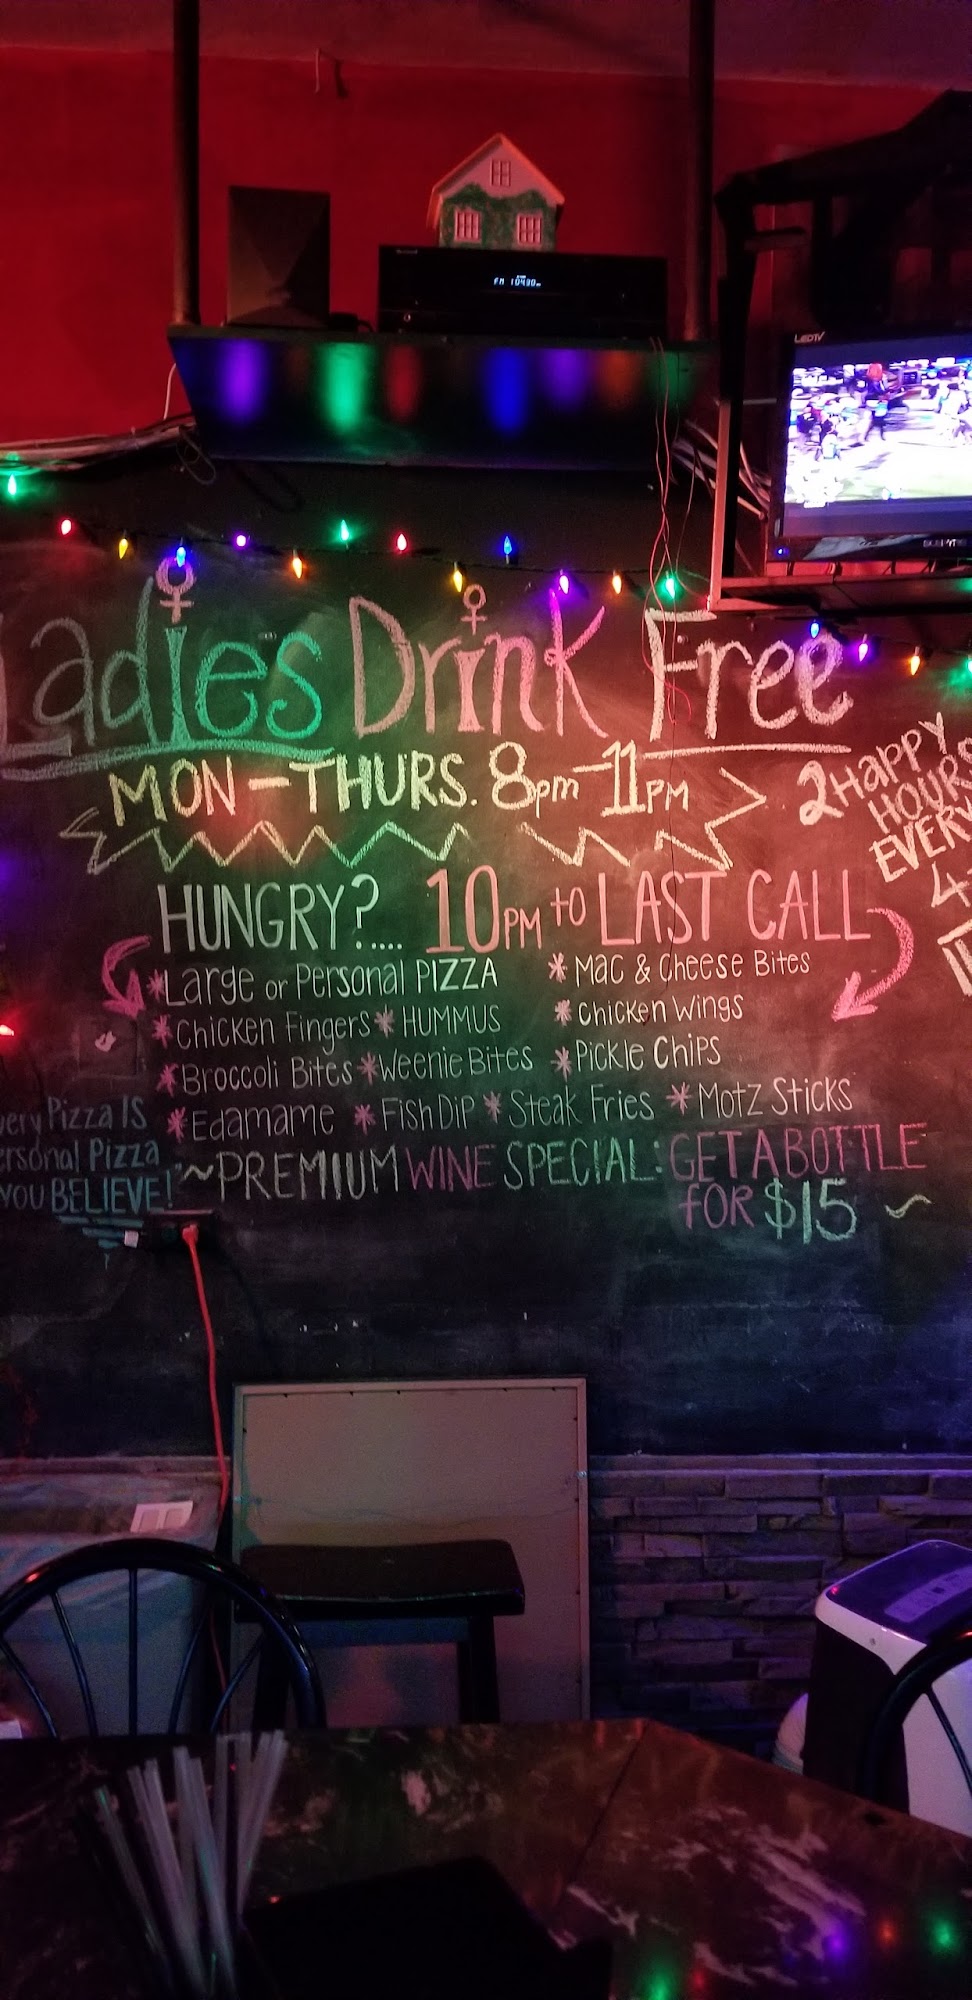 LEDTV
FM 104.30
Ladies Drink Free
MON-THURS. 8pm-11PM
2 HAPPY
HOURS
EVERY
HUNGRY?.... 10PM to LAST CALL
*Large or Personal PIZZA *Mac & Cheese Bites
*Chicken Fingers *HUMMUS *Chicken Wings
*Broccoli Bites *Weenie Bites *Pickle Chips
*Edamame *Fish Dip *Steak Fries *Motz Sticks
Pizza IS
Pizza
YOU BELIEVE!
~PREMIUM WINE SPECIAL: GET A BOTTLE
FOR $15 ~